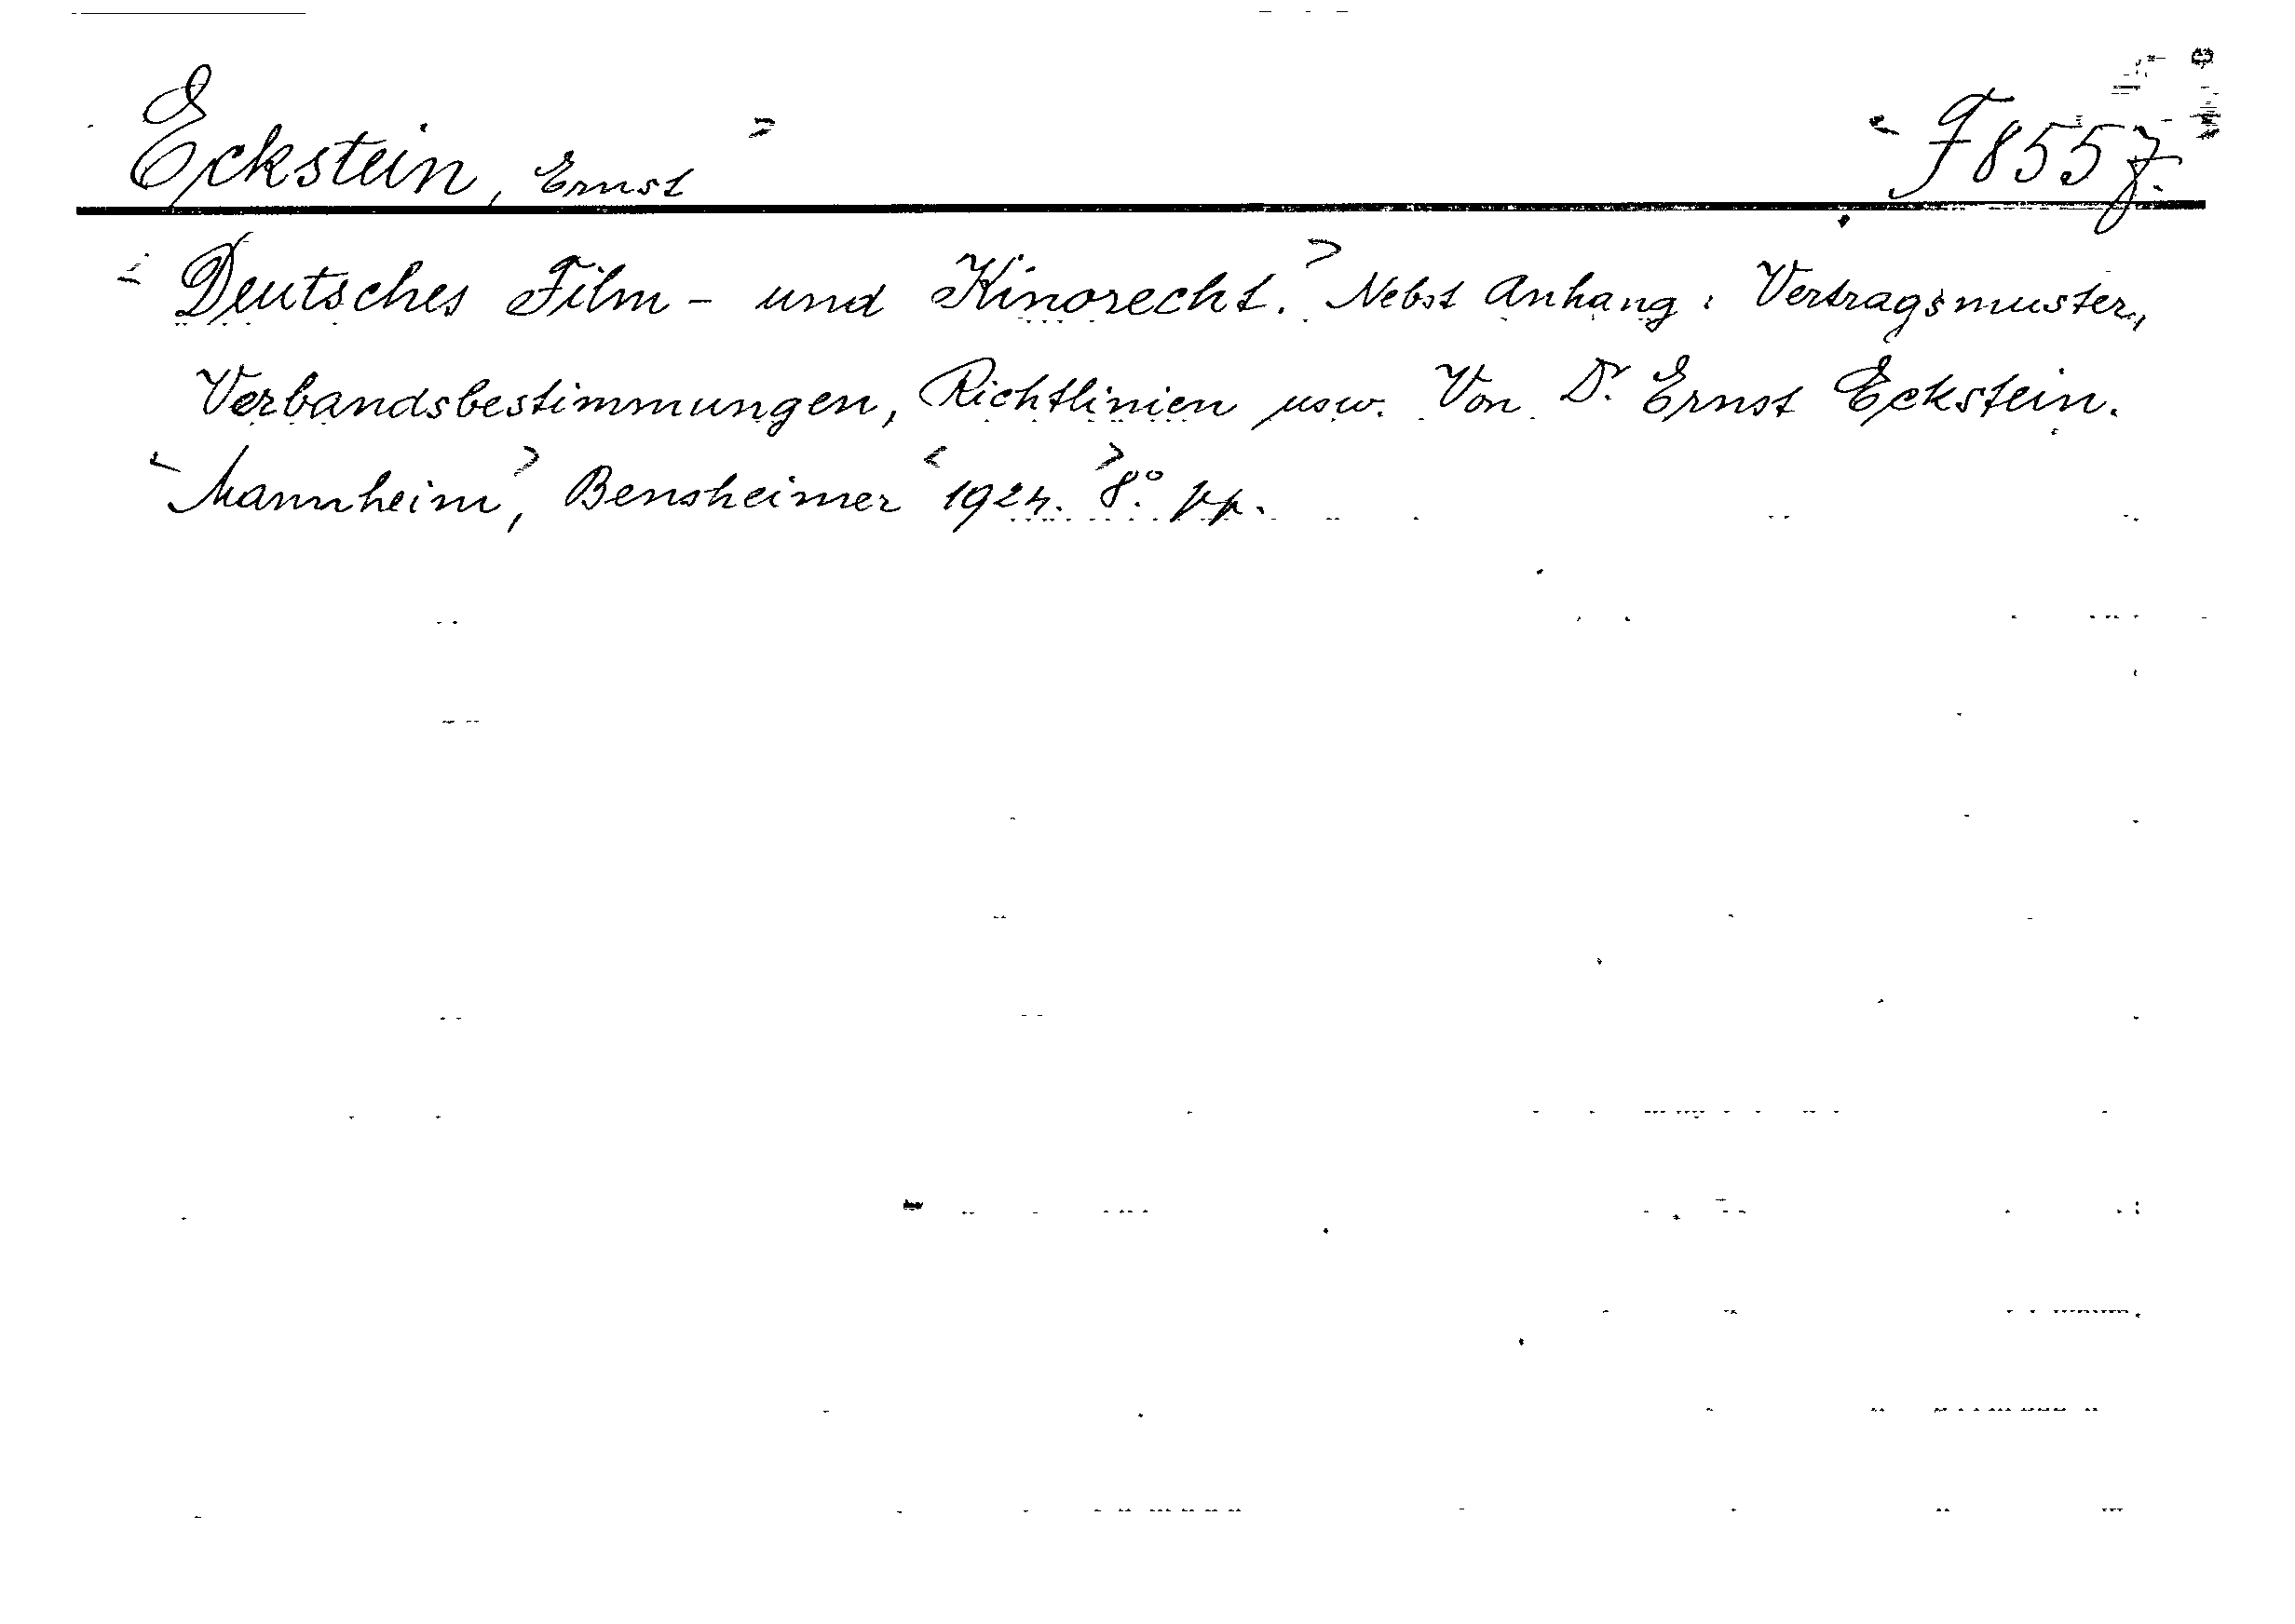 Eckstein, Ernst > < F 855 f.
< Deutsches Film- und Kinorecht. > Nebst Anhang: Vertragsmuster,
Verbandsbestimmungen, Richtlinien usw. Von Dr. Ernst Eckstein.
< Mannheim >, Bensheimer < 1924. > 8°. pp.